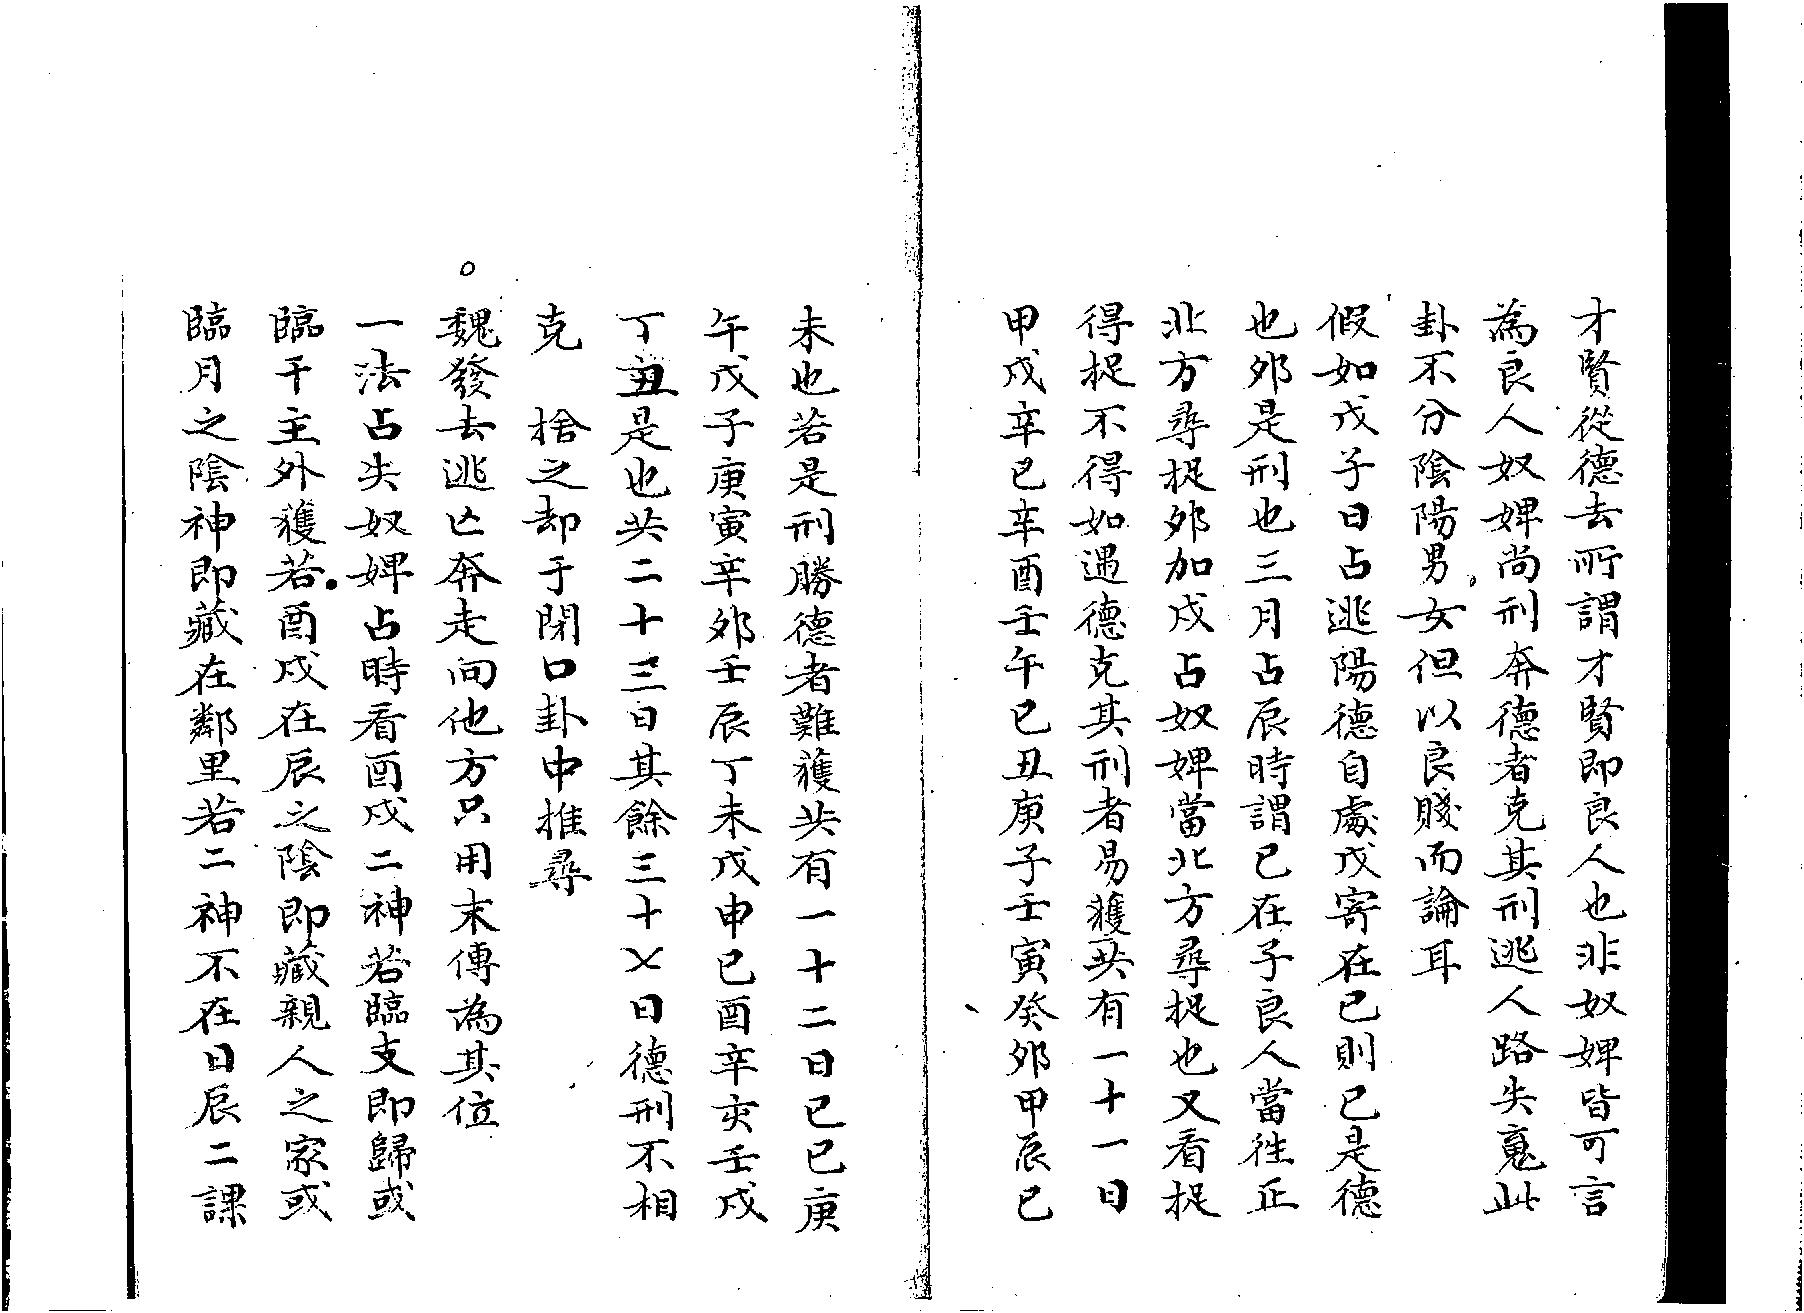 才賢從德去所謂才賢即良人也非奴婢皆可言
為良人奴婢尚刑奔德者克其刑逃人路失䰟此
卦不分陰陽男女但以良賤而論耳
假如戊子日占逃陽德自處戊寄在巳則巳是德
也夘是刑也三月占辰時謂巳在子良人當徃正
北方尋捉夘加戌占奴婢當北方尋捉也又看捉
得捉不得如遇德克其刑者易獲共有一十一日
甲戌辛巳辛酉壬午己丑庚子壬寅癸夘甲辰巳
未也若是刑勝德者難獲共有一十二日己巳庚
午戊子庚寅辛夘壬辰丁未戊申己酉辛亥壬戌
丁丑是也共二十三日其餘三十乂日德刑不相
克 捨之却于閉口卦中推尋
魏發去逃亡奔走向他方只用末傳為其位
○
一法占失奴婢占時看酉戌二神若臨支即歸或
臨干主外獲若酉戌在辰之陰即藏親人之家或
臨月之陰神即藏在鄰里若二神不在日辰二課